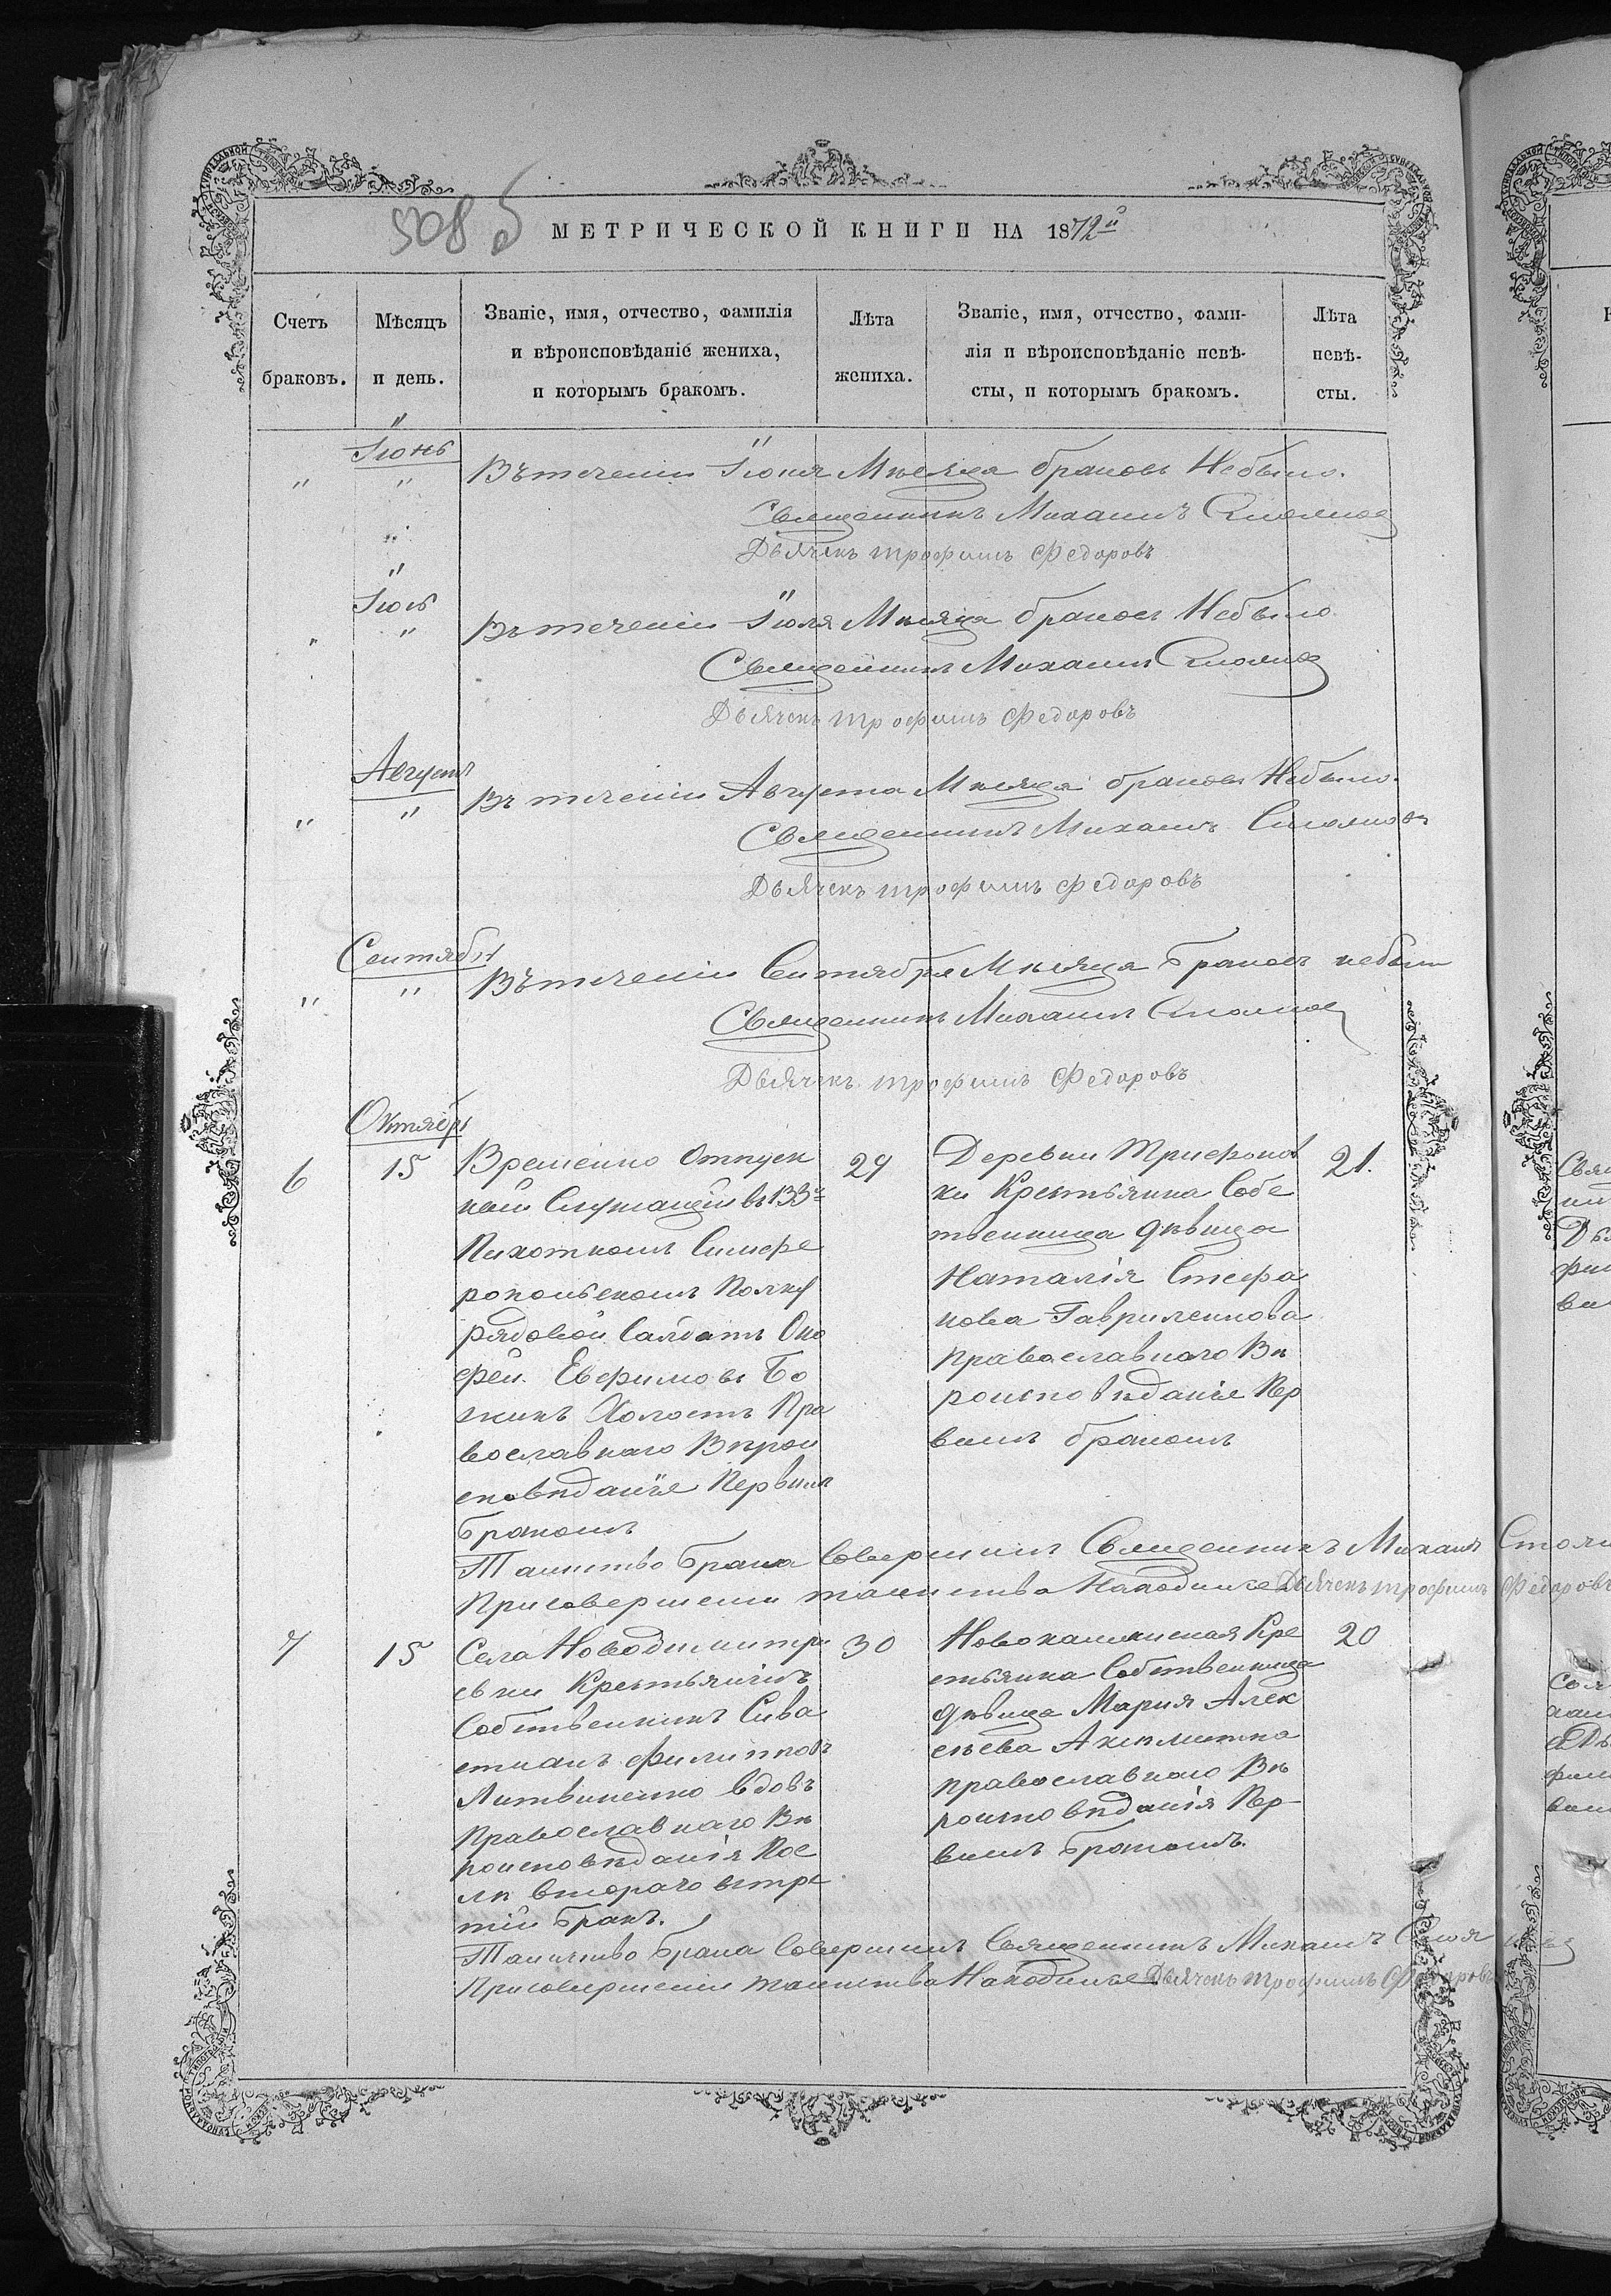 508 б
МЕТРИЧЕСКОЙ КНИГИ НА 1872й
Счетъ браковъ.
Мѣсяцъ и день.
Званіе, имя, отчество, фамилія
и вѣроисповѣданіе жениха,
и которымъ бракомъ.
Лѣта жениха.
Званіе, имя, отчество, фами-
лія и вѣроисповѣданіе невѣ-
сты, и которымъ бракомъ.
Лѣта невѣ-
сты.
Іюнь
Въ теченіи Іюня Мѣсяца браковъ Небыло.
Священникъ Михаилъ
Дьячекъ трофимъ Федоровъ
Іюль
Въ теченіи Іюля Мѣсяца браковъ Небыло
Священникъ Михаилъ
Дьячекъ трофимъ Федоровъ
Августъ
Въ теченіи Августа Мѣсяца браковъ Небыло.
Священникъ Михаилъ
Дьячекъ трофимъ федоровъ
Сентябрь
Въ теченіи Сентября Мѣсяца Браковъ небыло
Священникъ Михаилъ
Дьячекъ трофимъ Федоровъ
Октябрь
6
15
Временно Отпуск
ной Служащій въ 133м
Пихотномъ Симфе
ропольскомъ Полку
рядовой Салдатъ Оно
фей Ефимовъ Бо
жикъ Холостъ Пра
вославнаго Вѣрои
сповѣданіе Первымъ
Бракомъ
29
Деревни Трифонов
ки Крестьянка Собс
твенница дѣвица
Наталія Стефа
нова Гавриленкова
православнаго Вѣ
роисповѣданіе Пер
вымъ бракомъ
21.
Таинство Брака Совершилъ Священникъ Михаилъ
Присовершеніи таинства Находился Дьячекъ трофимъ Федоровъ
7
15
Села Новодимитрі
евки Крестьянинъ
Собственникъ Сива
стианъ Филипповъ
Литвиненко вдовъ
Православнаго Вѣ
роисповѣданія Пос
лѣ втораго встре
тій Бракъ.
30
Крестьянка Собственница
дѣвица Мария Алек
сѣева
православнаго Вѣ
роисповѣданія Пер-
вымъ Бракомъ.
20
Таинство Брака Совершилъ Священникъ Михаилъ
Присовершеніи таинства Находился Дьячекъ трофимъ Федоровъ